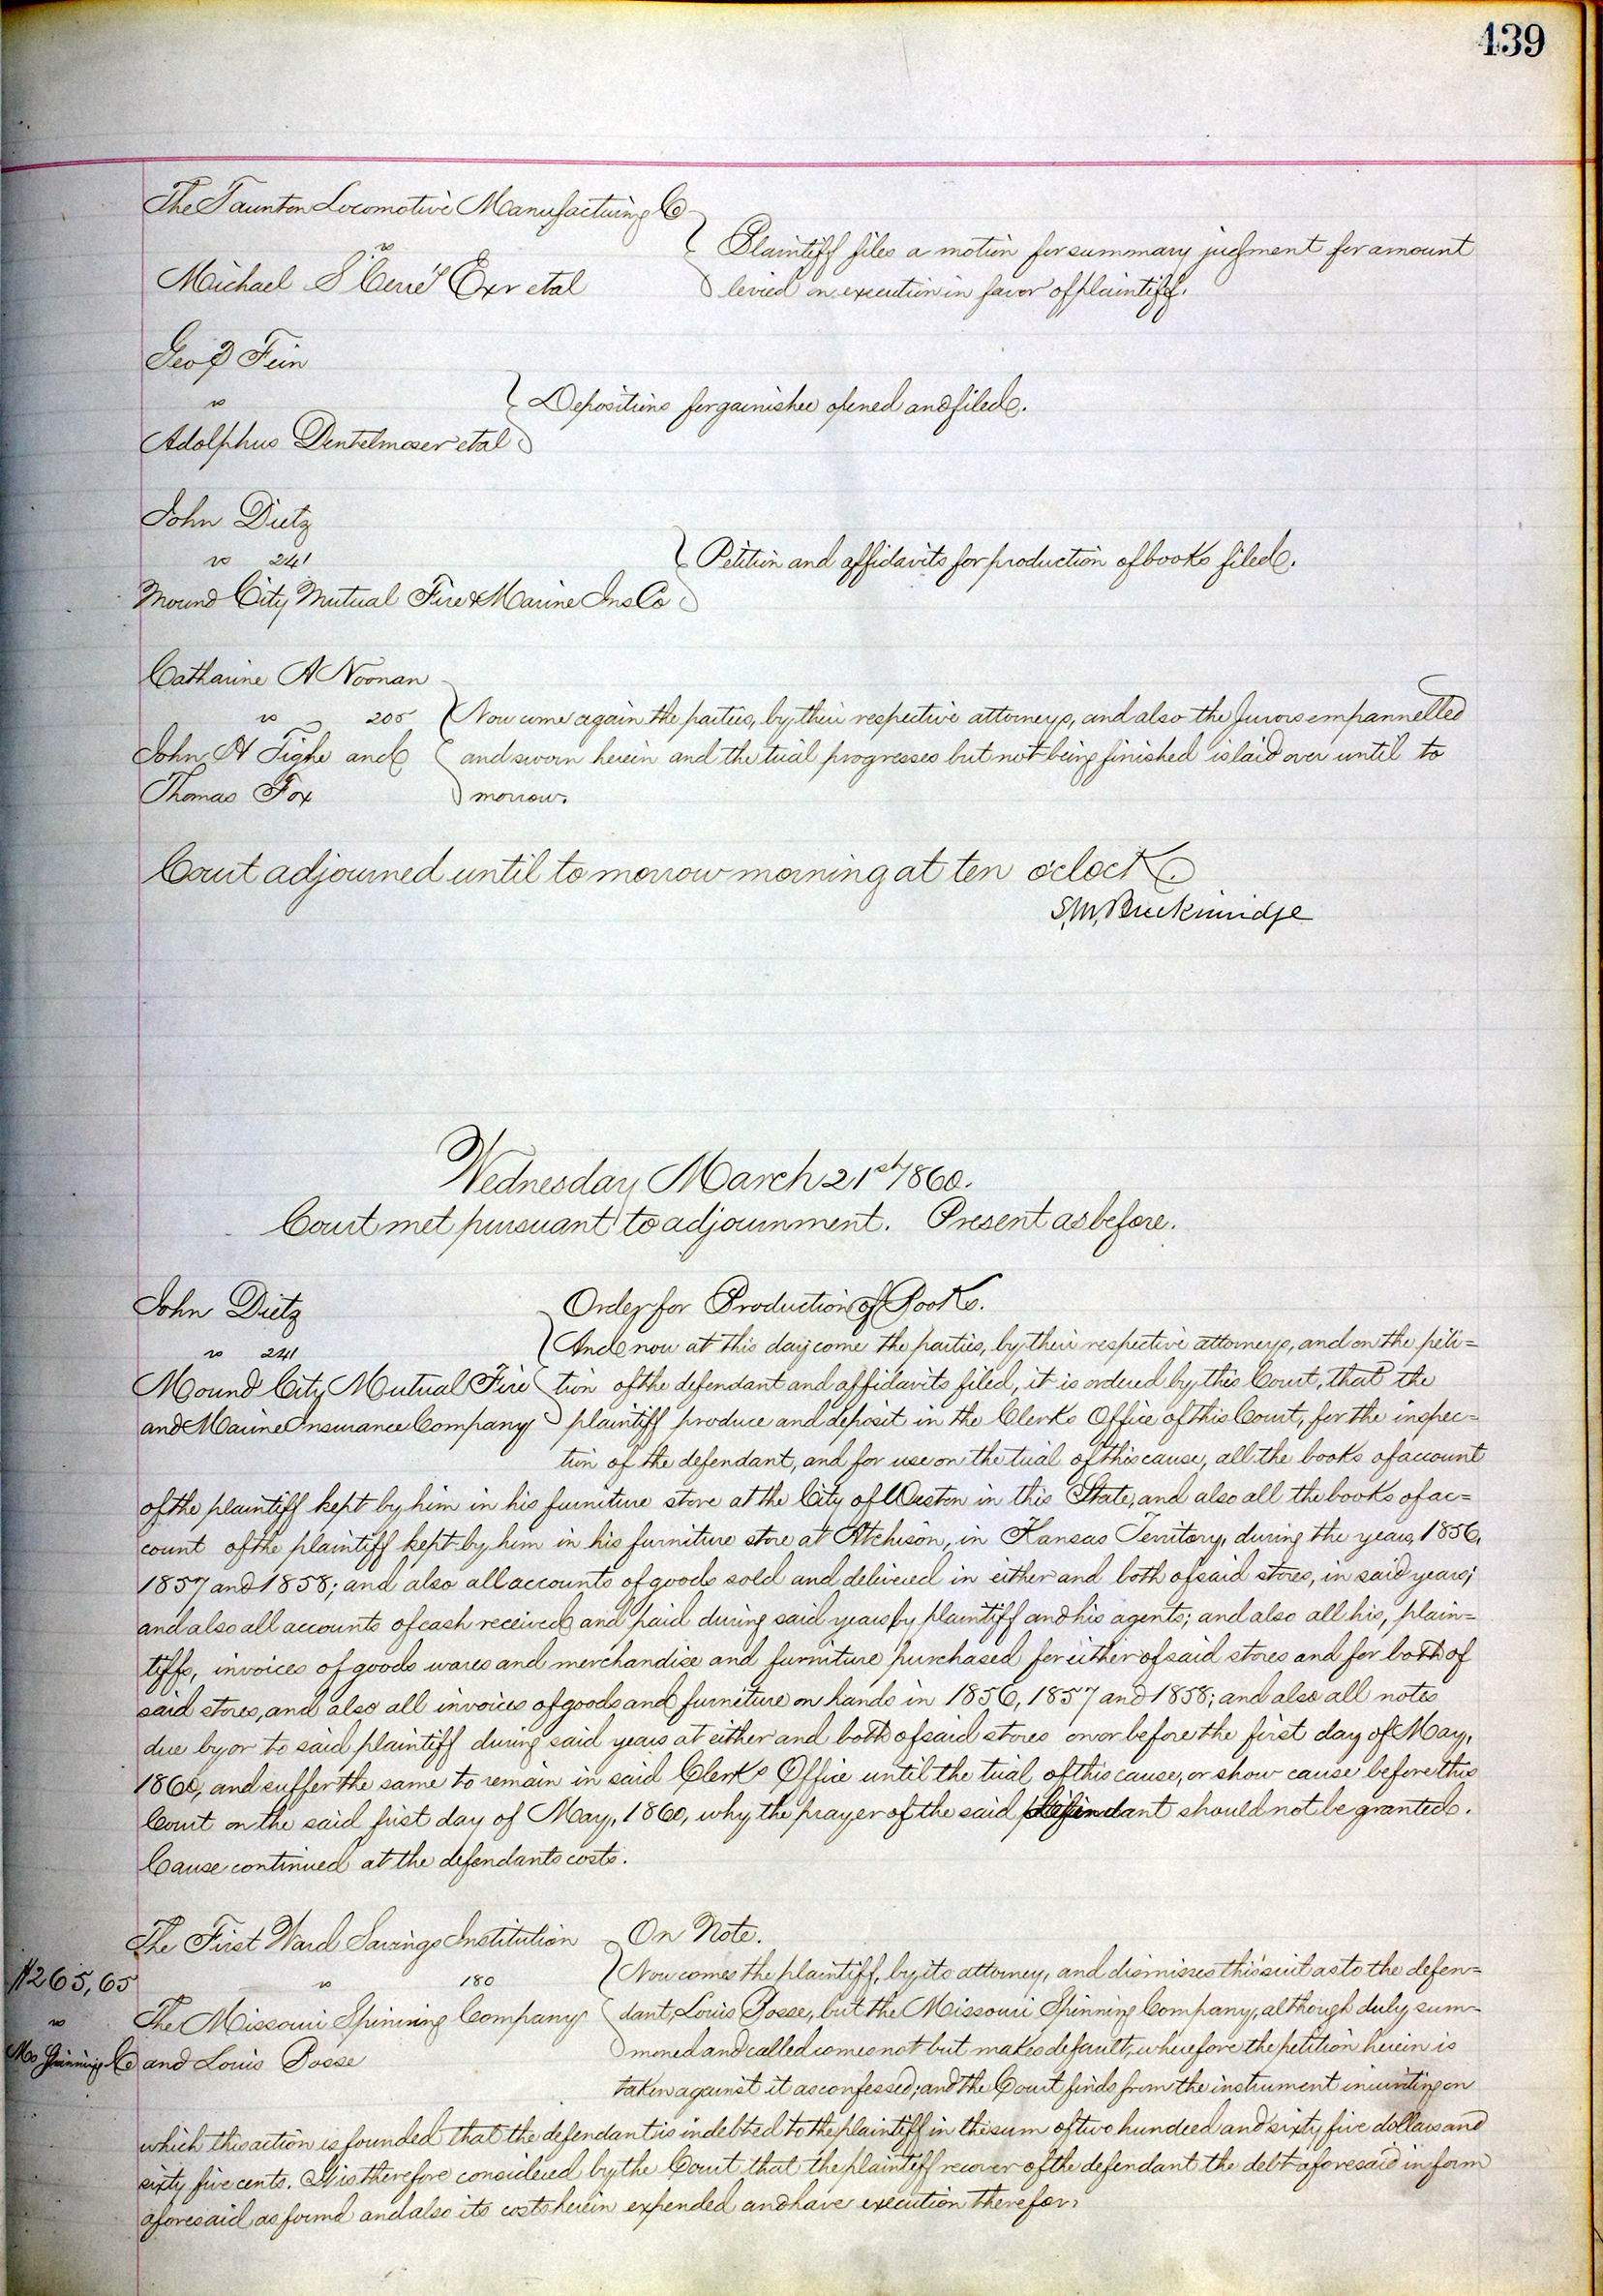 439
The Taunton Locomotive Manufacturing Co
vs
Michael S Cerré Exr et al
Plaintiff files a motion for summary judgment for amount
levied on execution in favor of plaintiff.
Geo P Fein
vs
Adolphus Dentelmoser et al
Depositions for garnishee opened and filed.
John Dietz
vs 241
Mound City Mutual Fire & Marine Ins Co
Petition and affidavits for production of books filed.
Catharine A Noonan
vs 205
John A Tighe and
Thomas Fox
Now come again the parties, by their respective attorneys, and also the Jurors empannelled
and sworn herein and the trial progresses but not being finished is laid over until to
morrow.
Court adjourned until to morrow morning at ten o'clock.
S. M. Breckinridge
Wednesday March 21st 1860.
Court met pursuant to adjournment. Present as before.
John Dietz
vs 241
Mound City Mutual Fire
and Marine Insurance Company
Order for Production of Books.
And now at this day come the parties, by their respective attorneys, and on the peti=
tion of the defendant and affidavits filed, it is ordered by this Court, that the
plaintiff produce and deposit in the Clerks Office of this Court, for the inspec=
tion of the defendant, and for use on the trial of this cause, all the books of account
of the plaintiff kept by him in his furniture store at the City of Weston in this State, and also all the books of ac=
count of the plaintiff kept by him in his furniture store at Atchison, in Kansas Territory, during the years, 1856,
1857 and 1858; and also all accounts of goods sold and delivered in either and both of said stores, in said years;
and also all accounts of cash received and paid during said years by plaintiff and his agents; and also all his, plain=
tiffs, invoices of goods wares and merchandise and furniture purchased for either of said stores and for both of
said stores, and also all invoices of goods and furniture on hands in 1856, 1857 and 1858; and also all notes
due by or to said plaintiff during said years at either and both of said stores on or before the first day of May,
1860, and suffer the same to remain in said Clerks Office until the trial of this cause, or show cause before this
Court on the said first day of May, 1860, why the prayer of the said defendant should not be granted.
Cause continued at the defendants costs.
The First Ward Savings Institution
vs 180
The Missouri Spinning Company
and Louis Posse
$265,65
vs
Mo Spinning Co
On Note.
Now comes the plaintiff, by its attorney, and dismisses this suit as to the defen=
dant, Louis Posse, but the Missouri Spinning Company, although duly sum=
moned and called comes not but makes default, wherefore the petition herein is
taken against it as confessed; and the Court finds from the instrument in writing on
which this action is founded that the defendant is indebted to the plaintiff in the sum of two hundred and sixty five dollars and
sixty five cents. It is therefore considered by the Court that the plaintiff recover of the defendant the debt aforesaid in form
aforesaid as found and also its costs herein expended and have execution therefor.